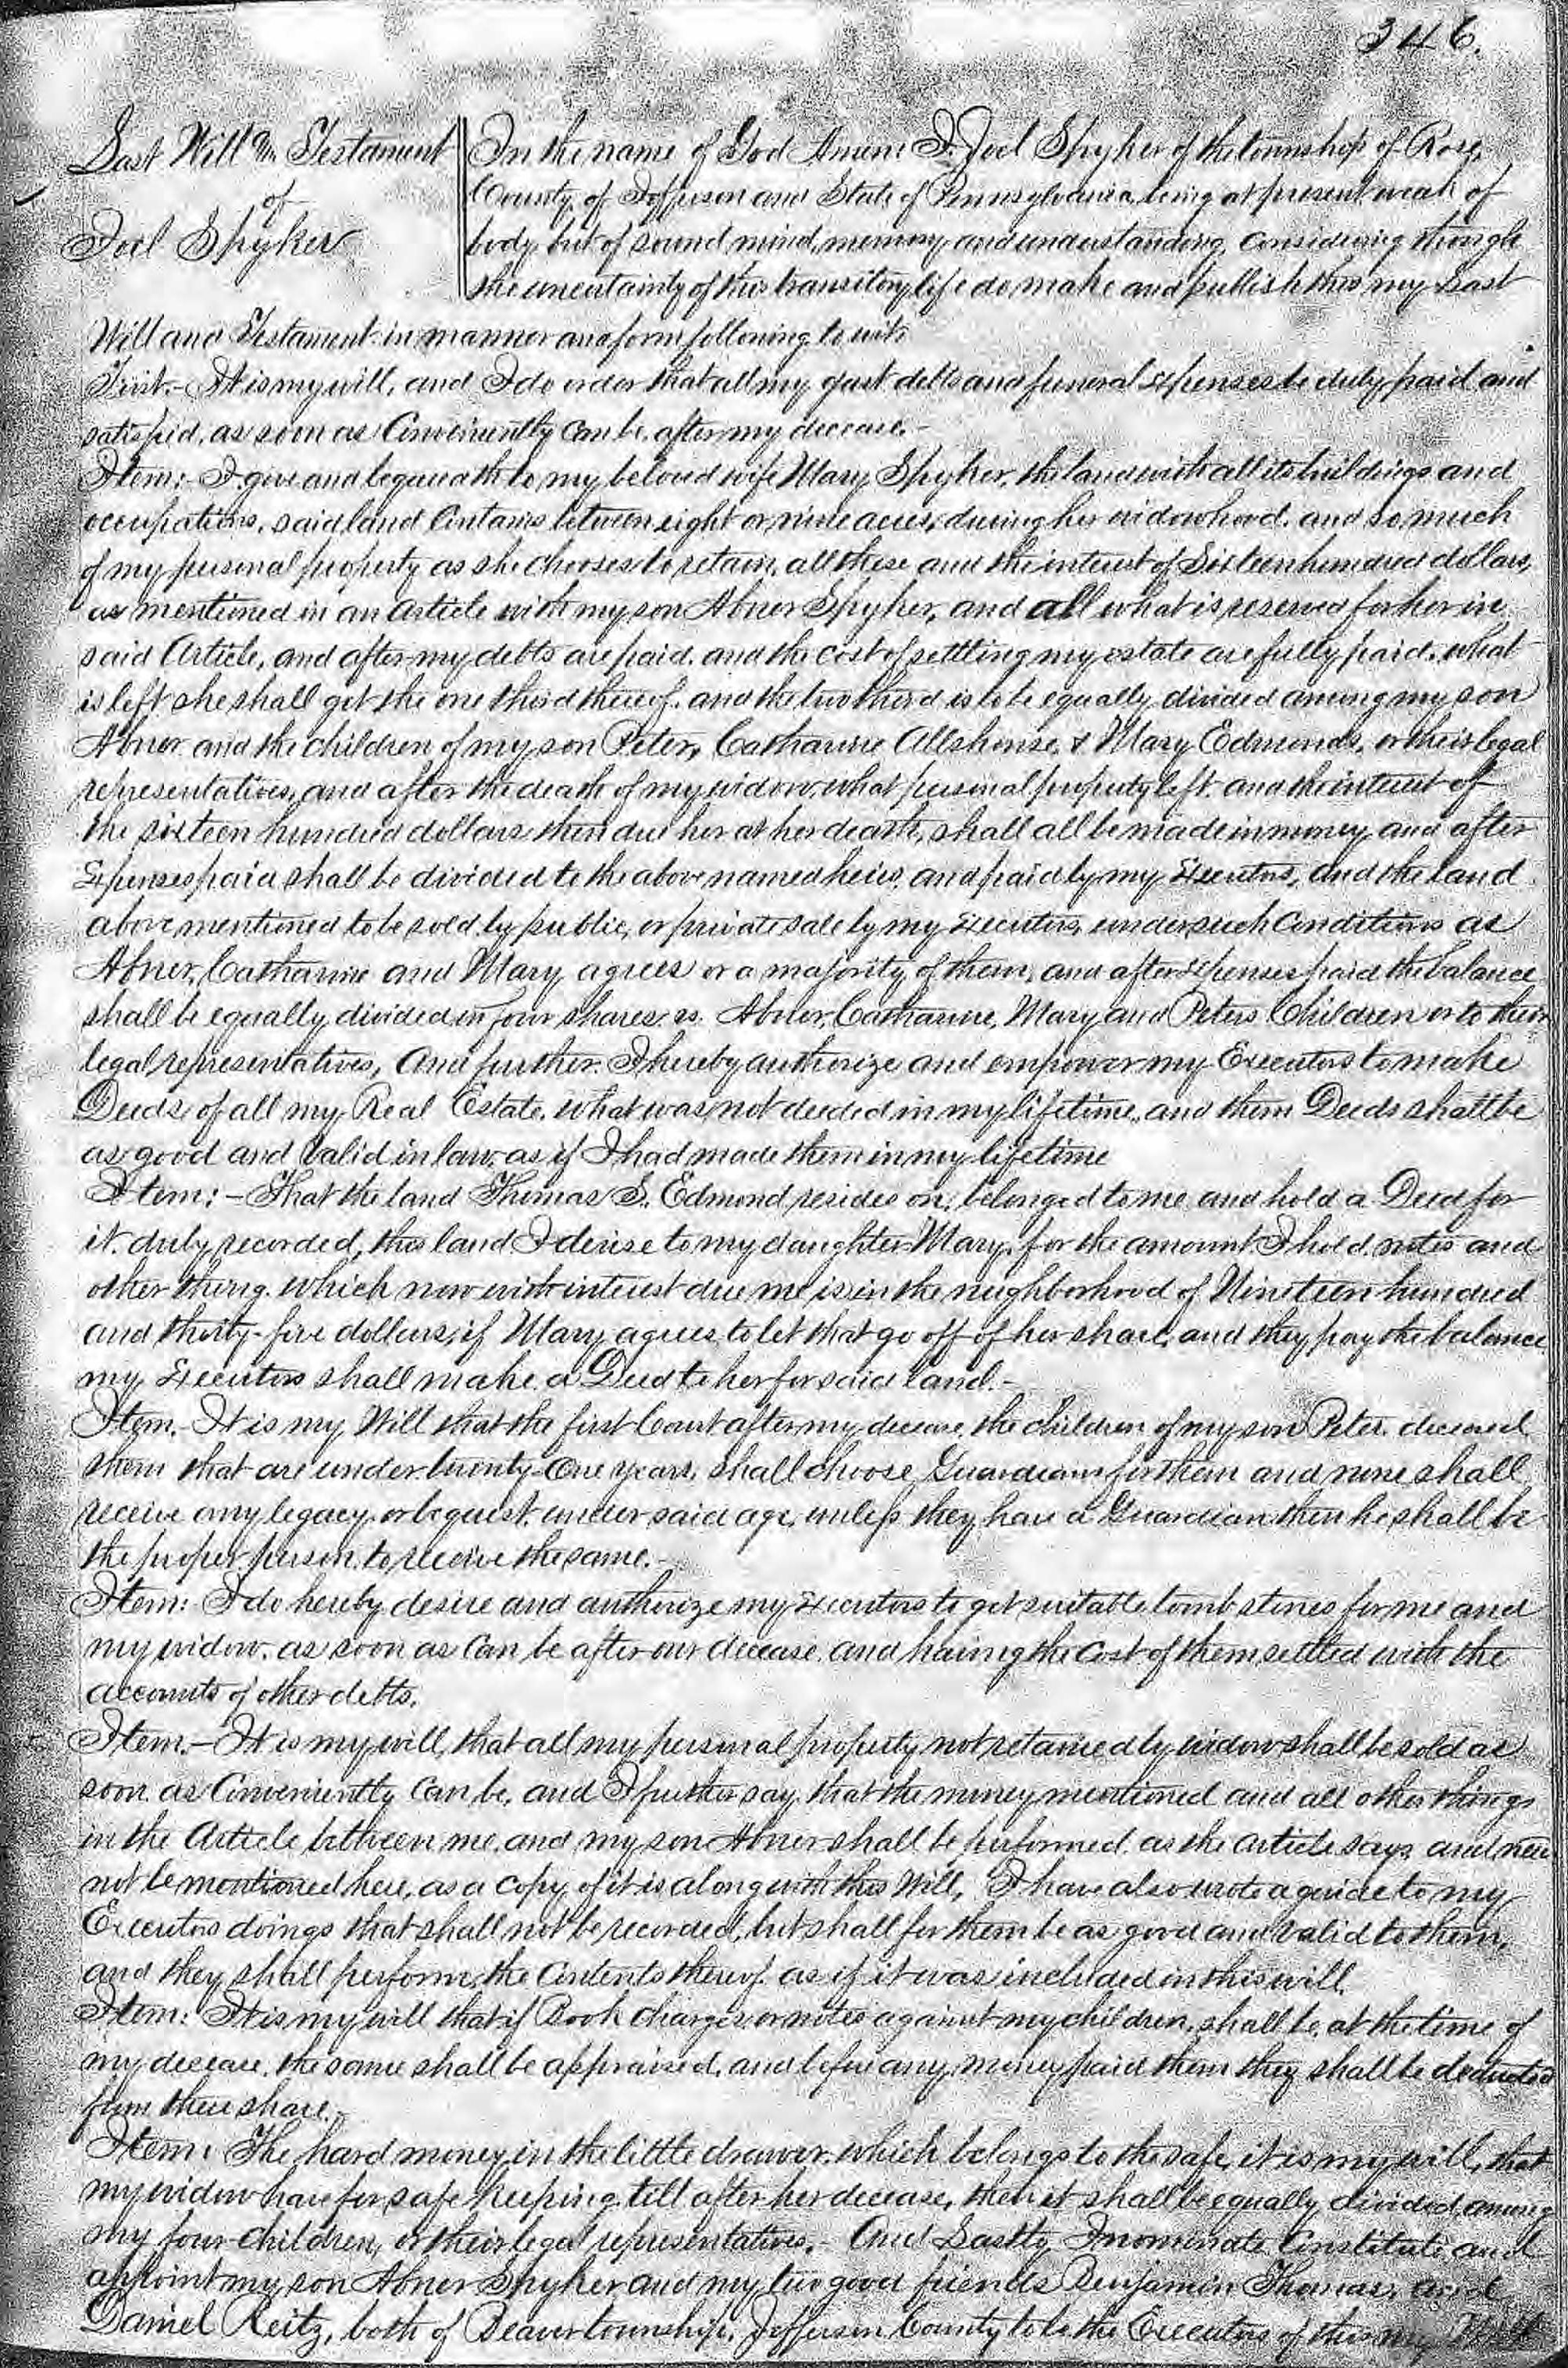 346.
Last Will & Testament
of
Joel Spyker
In the name of God Amen: I, Joel Spyker of the township of Rose,
County of Jefferson and State of Pennsylvania, being at present weak of
body but of sound mind, memory and understanding, considering though
the uncertainty of this transitory life do make and publish this my Last
Will and Testament in manner and form following to wit:
First.- It is my will, and I do order that all my just debts and funeral Expenses be duly paid and
satisfied, as soon as Conveniently can be, after my decease.-
Item:- I give and bequeath to my beloved wife Mary Spyker, the land with all its buildings and
occupations, said land Contains between eight or nine acres, during her widowhood, and so much
of my personal property as she chooses to retain, all these and the interest of Sixteen hundred dollars,
as mentioned in an article with my son Abner Spyker, and all what is reserved for her in
said Article, and after my debts are paid, and the cost of settling my estate are fully paid, what
is left she shall get the one third thereof, and the two third is to be equally divided among my son
Abner and the children of my son Peter, Catharine Allshouse, & Mary Edmonds, or their legal
representatives, and after the death of my widow, what personal property left, and the interest of
the sixteen hundred dollars then due her at her death, shall all be made in money, and after
Expenses paid shall be divided to the above named heirs, and paid by my Executors, and the land
above mentioned to be sold by public, or private sale by my Executors, under such Conditions as
Abner, Catharine and Mary, agrees or a majority of them, and after Expenses paid the balance
shall be equally divided in four shares, as. Abner, Catharine, Mary and Peters Children or to their
legal representatives, And further, I hereby authorize and empower my Executors to make
Deeds of all my Real Estate, what was not deeded in my lifetime, and them Deeds shall be
as good and Valid in law, as if I had made them in my lifetime
Item:- That the land Thomas S. Edmond resides on, belonged to me, and hold a Deed for
it, duly recorded, this land I devise to my daughter Mary, for the amount I hold notes and
other thing, which now with interest due me is in the neighborhood of Nineteen hundred
and thirty-five dollars, if Mary agrees to let that go off of her share, and they pay the balance
my Executors shall make a Deed to her for said land.-
Item.- It is my Will that the first Court after my decease, the children of my son Peter, deceased,
them that are under twenty-one years, shall choose Guardians for them and none shall
receive any legacy or bequest, under said age, unless they have a Guardian, then he shall be
the proper person, to receive the same.-
Item: I do hereby desire and authorize my Executors to get suitable tomb stones for me and
my widow, as soon as can be after our decease, and having the cost of them settled with the
accounts of other debts.
Item.- It is my will, that all my personal property not retained by widow shall be sold as
soon as Conveniently can be, and I further say, that the money mentioned and all other things
in the Article between me, and my son Abner shall be performed, as the article says, and need
not be mentioned here, as a copy of it is along with this Will, I have also wrote a guide to my
Executors doings that shall not be recorded, but shall for them be as good and valid to them,
and they shall perform, the Contents thereof, as if it was included in this will.
Item: It is my will that if Book charges, or notes against my children, shall be, at the time of
my decease, the same shall be appraised, and before any money paid them they shall be deducted
from their share.-
Item: The hard money in the little drawer, which belongs to the safe, it is my will, that
my widow have for safe keeping till after her decease, then it shall be equally divided, among
my four children, or their legal representatives,- And Lastly, I nominate, Constitute, and
appoint my son Abner Spyker and my two good friends Benjamin Thomas, and
Daniel Reitz, both of Beaver township, Jefferson County to be the Executors of this my Will